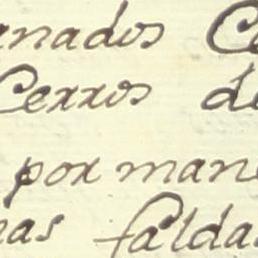 anados C
Cerros de
por mane
nas faldas